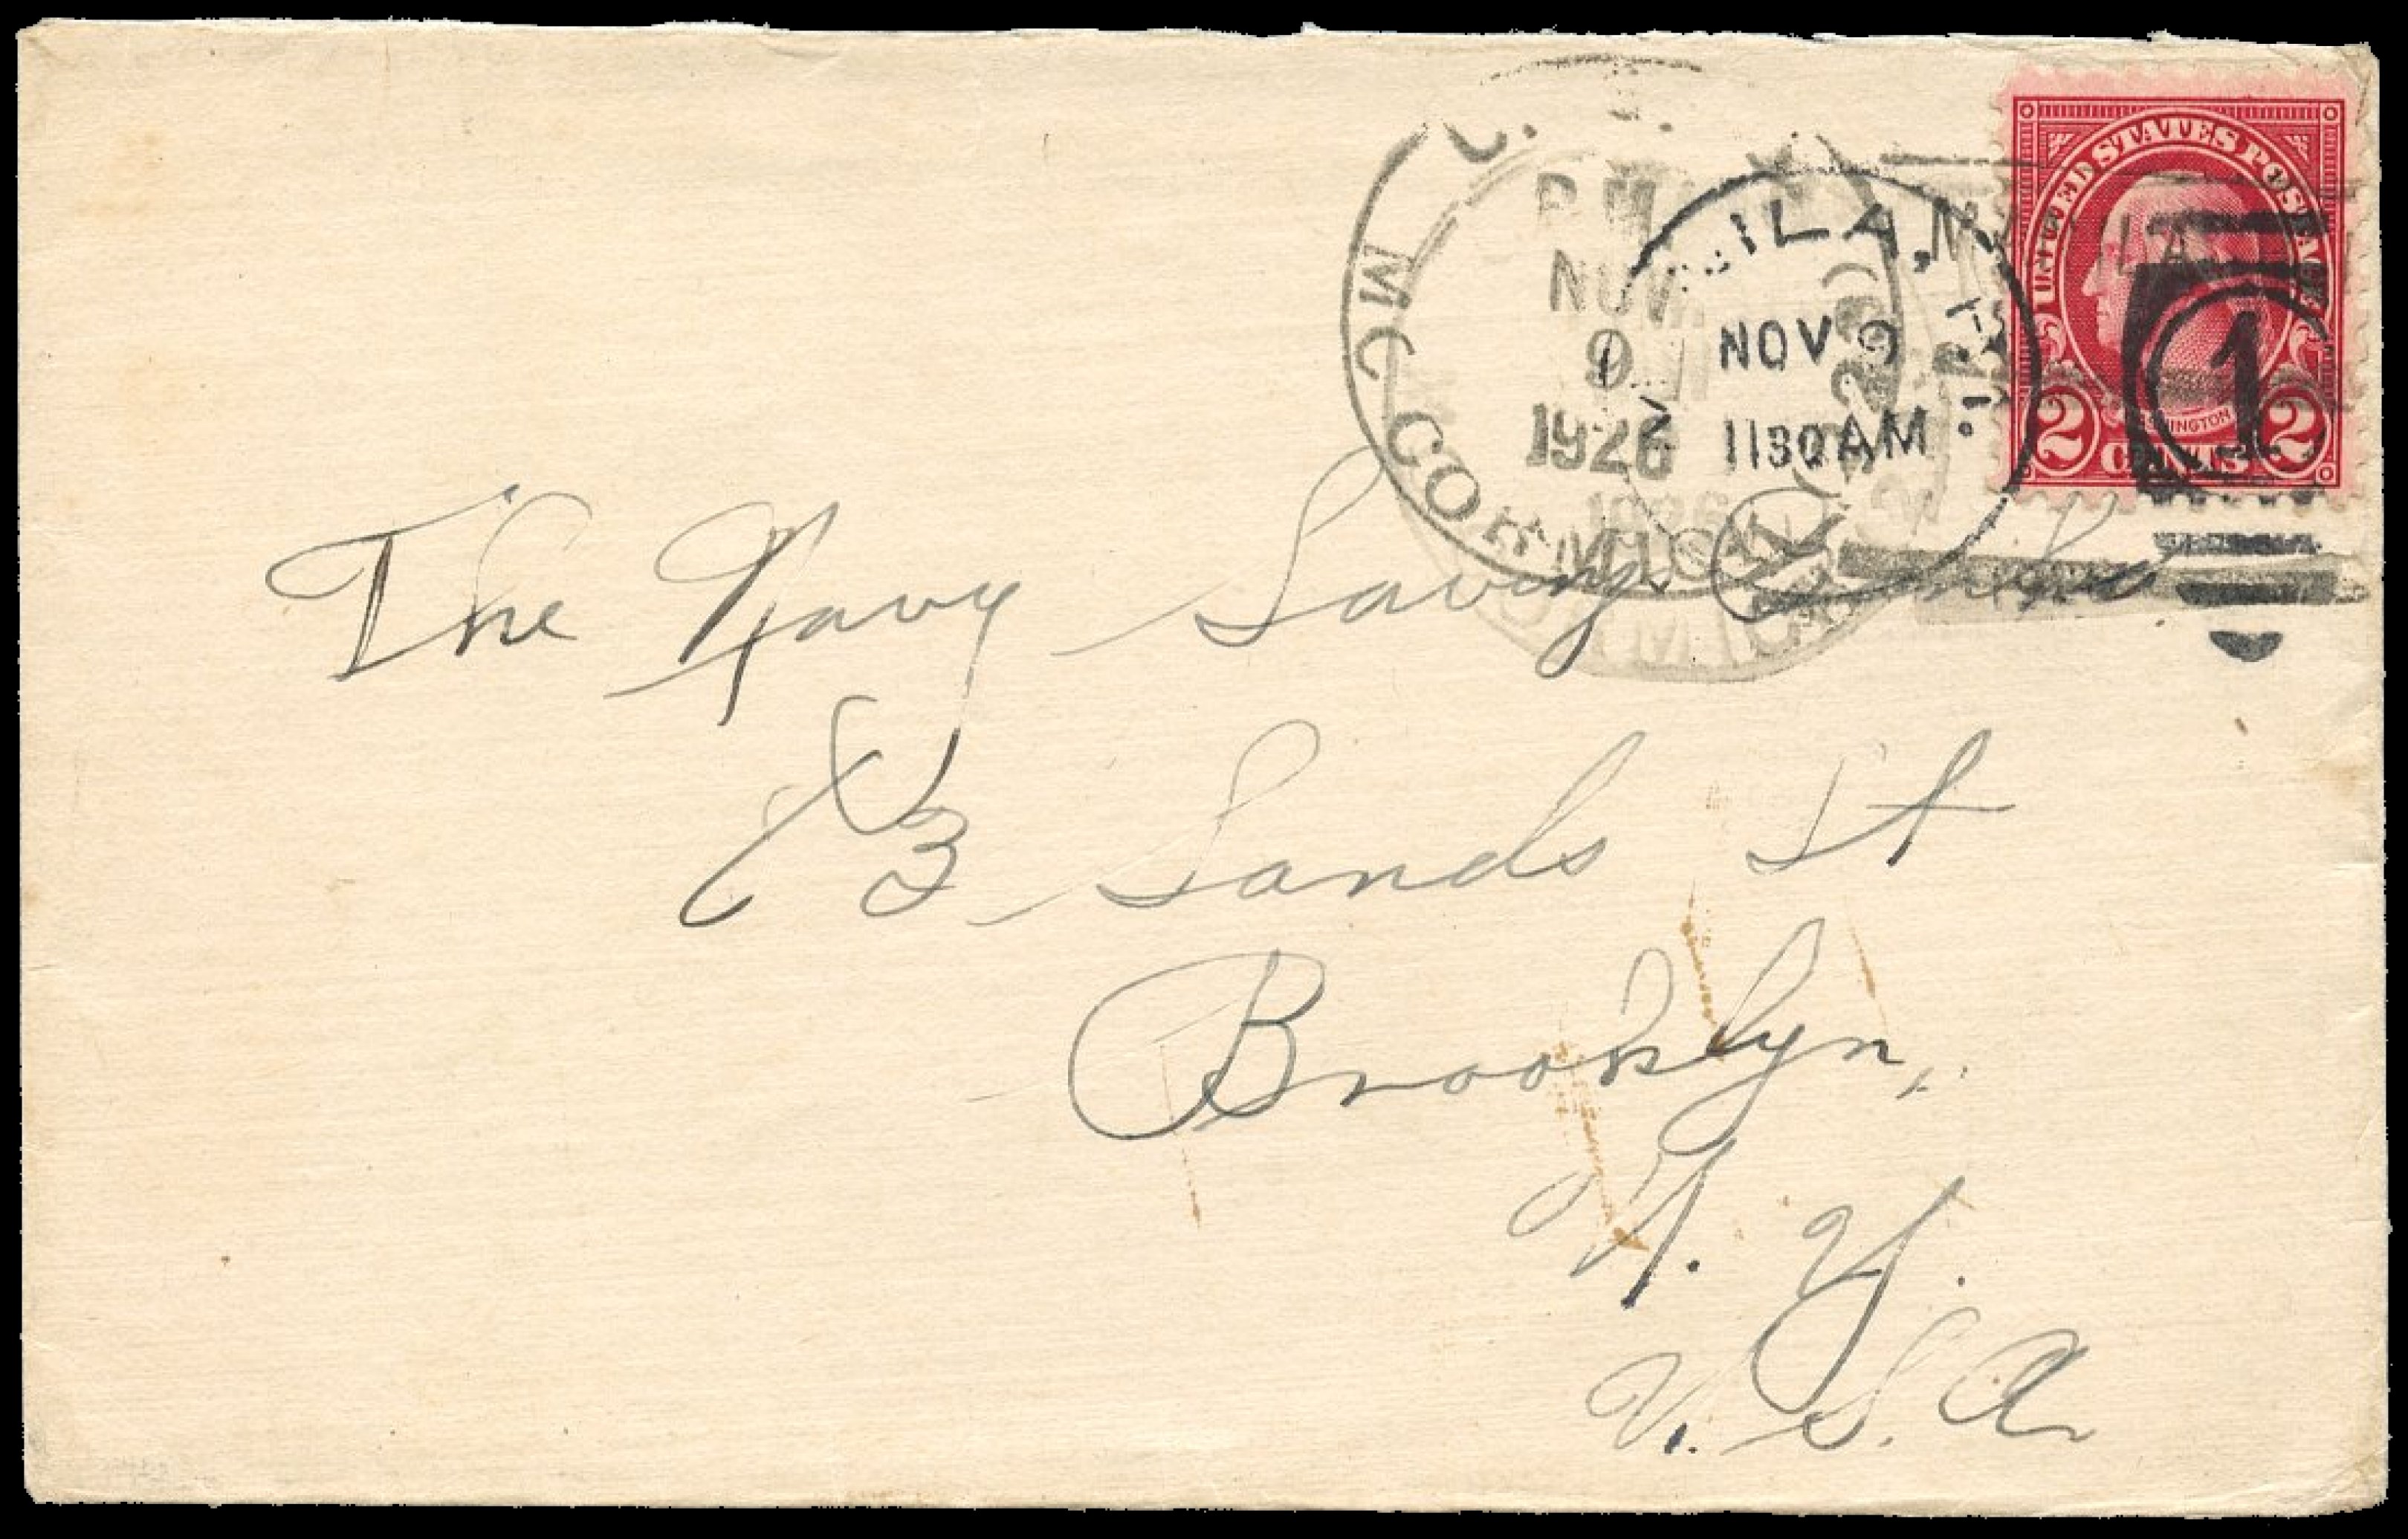 UNITED STATES POSTAGE
WASHINGTON
2 CENTS 2
1
P.M.
NOV
9
1926
MC CORMICK
NOV 9
1130 AM
The Navy Saving Bank
83 Sands St
Brooklyn,
N. Y.
U. S. A